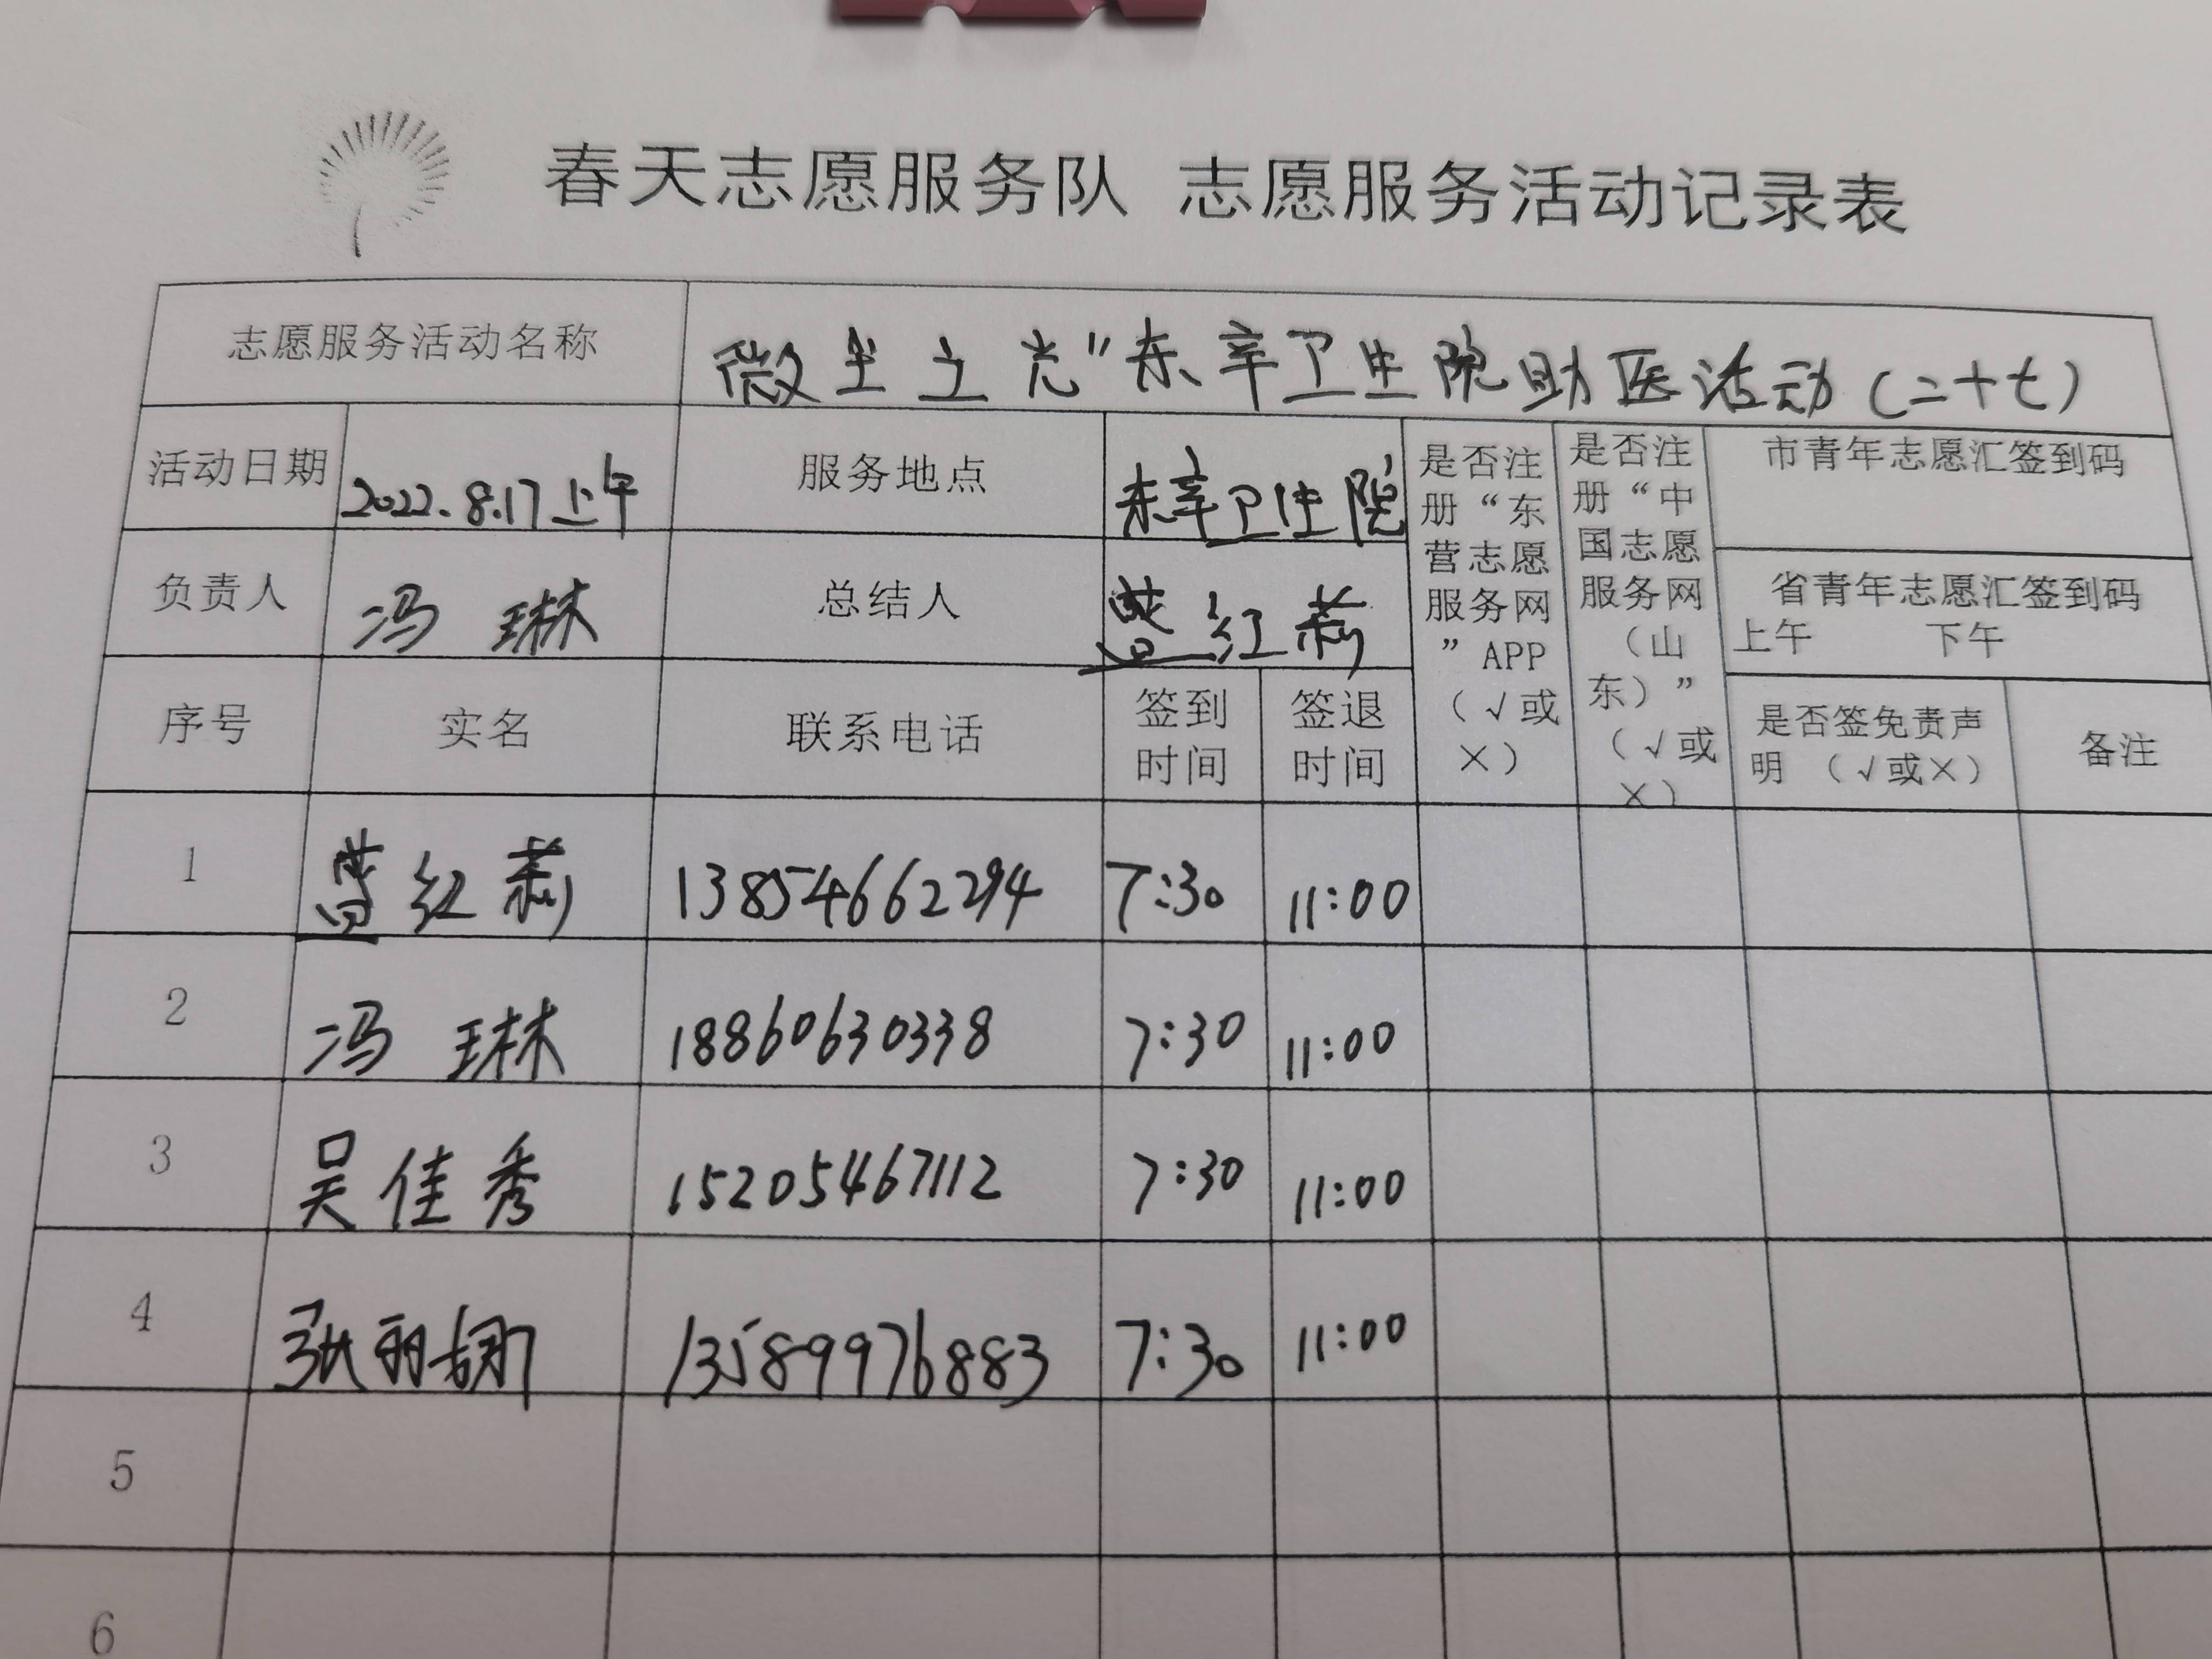 春天志愿服务队 志愿服务活动记录表
志愿服务活动名称 微尘之光"东辛卫生院助医活动(二十七)
活动日期 2022.8.17上午 服务地点 东辛卫生院
是否注册“东营志愿服务网”APP（√或×）
是否注册“中国志愿服务网（山东）”（√或×）
市青年志愿汇签到码
负责人 冯琳 总结人 红莉
省青年志愿汇签到码
上午 下午
序号 实名 联系电话 签到时间 签退时间 是否签免责声明（√或×） 备注
1 红莉 13854662294 7:30 11:00
2 冯琳 18860630338 7:30 11:00
3 吴佳秀 15205467112 7:30 11:00
4 张丽娜 13589976883 7:30 11:00
5
6